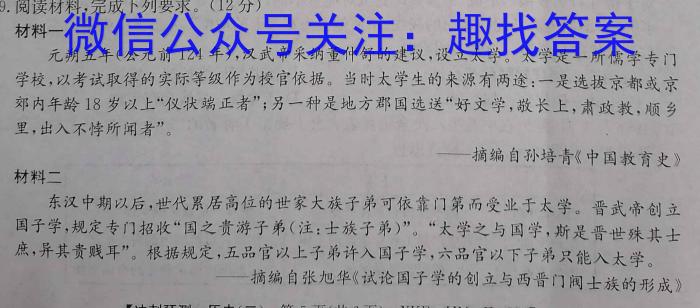 9. 阅读材料,完成下列要求。(12分)
微信公众号关注：趣找答案
材料一
元朔五年(公元前124年),汉武帝采纳董仲舒的建议,设立太学。太学是一所儒学专门
学校,以考试取得的实际等级作为授官依据。当时太学生的来源有两途:一是选拔京都或京
郊内年龄18岁以上“仪状端正者”;另一种是地方郡国选送“好文学,敬长上,肃政教,顺乡
里,出入不悖所闻者”。
——摘编自孙培青《中国教育史》
材料二
东汉中期以后,世代累居高位的世家大族子弟可依靠门第而受业于太学。晋武帝创立
国子学,规定专门招收“国之贵游子弟(注:士族子弟)”。“太学之与国学,斯是晋世殊其士
庶,异其贵贱耳”。根据规定,五品官以上子弟许入国子学,六品官以下子弟只能入太学。
——摘编自张旭华《试论国子学的创立与西晋门阀士族的形成》